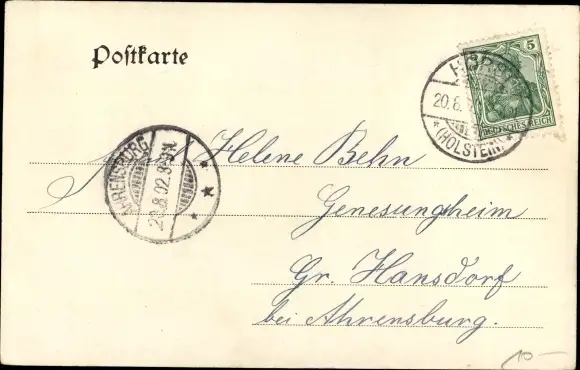 Postkarte
5
DEUTSCHES REICH
20.8.
* (HOLSTEIN) *
AHRENSBURG
20.8.02.
Helene Behn
Genesungheim
Gr. Hansdorf
bei Ahrensburg.
10-